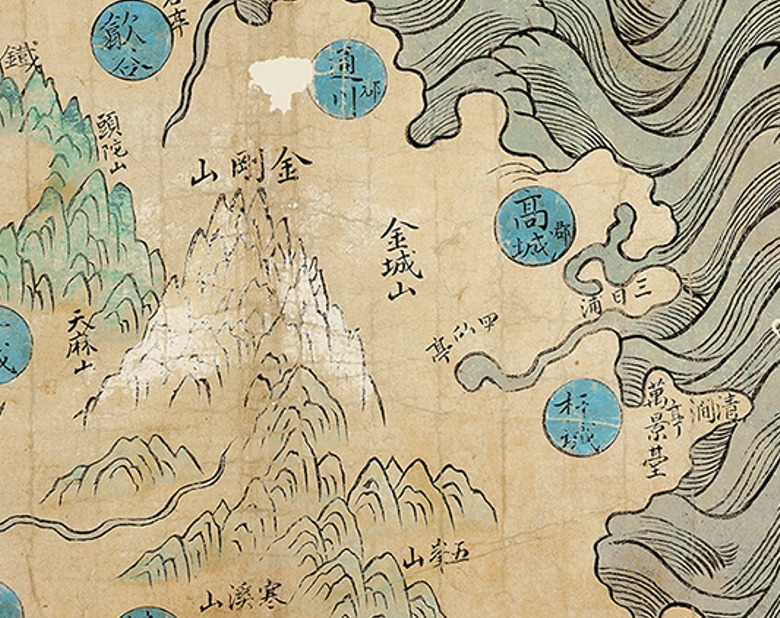 歙谷
亭
鐵
通川郡
頭陀山
金剛山
金城山
高城郡
三日浦
四仙亭
天麻山
城
杆城
清澗亭
萬景臺
五峯山
寒溪山